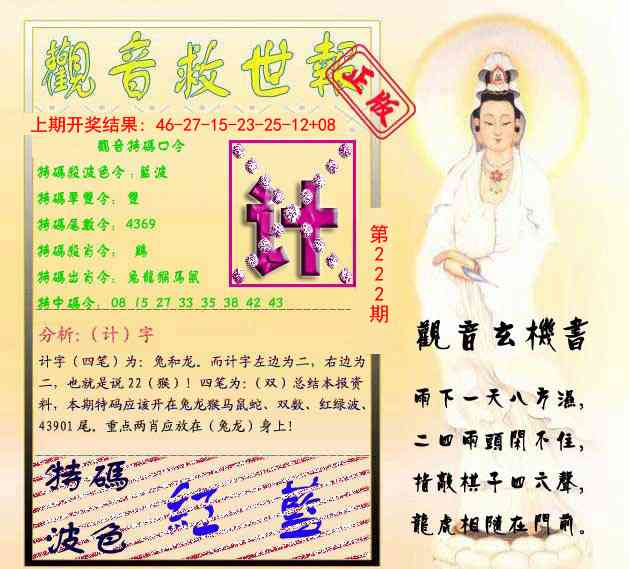 觀音救世報
正版
上期开奖结果：46-27-15-23-25-12+08
觀音特碼口令
特碼殺波色令：藍波
特碼單雙令： 雙
特碼尾數令：4369
特碼殺肖令： 鷄
特碼出肖令： 兔龍猴馬鼠
特中碼令：08 15 27 33 35 38 42 43
计
第222期
分析：（计）字
计字（四笔）为：兔和龙。而计字左边为二，右边为
二，也就是说22（猴）！四笔为：（双）总结本报资
料，本期特码应该开在兔龙猴马鼠蛇、双数、红绿波、
43901尾。重点两肖应放在（兔龙）身上！
特碼
波色
红 藍
觀音玄機書
雨下一天八方濕，
二四兩頭閑不住，
指敲棋子四六聲，
龍虎相隨在門前。